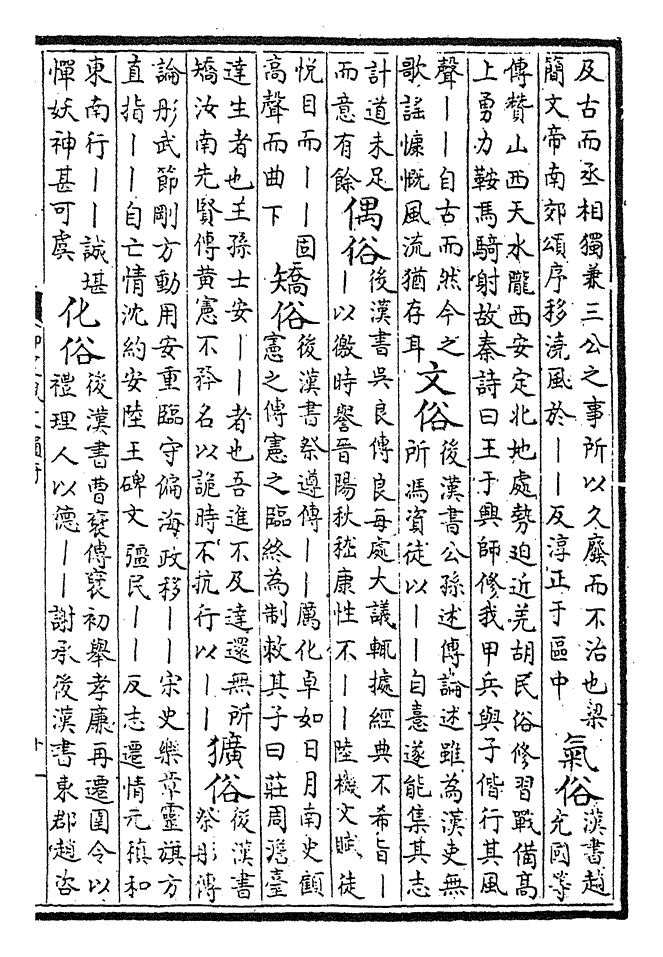 及古而丞相獨兼三公之事所以久廢而不治也梁
簡文帝南郊頌序移澆風於――反淳正于區中
氣俗
漢書趙
充國等
傳贊山西天水隴西安定北地處勢迫近羌胡民俗修習戰備高
上勇力鞍馬騎射故秦詩曰王于興師修我甲兵與子偕行其風
聲――自古而然今之
歌謠慷慨風流猶存耳
文俗
後漢書公孫述傳論述雖為漢吏無
所馮資徒以――自憙遂能集其志
計道未足
而意有餘
偶俗
後漢書吳良傳良每處大議輒據經典不希旨―
―以徼時譽晉陽秋嵇康性不――陸機文賦徒
悅目而――固
高聲而曲下
矯俗
後漢書祭遵傳――厲化卓如日月南史顧
憲之傳憲之臨終為制敕其子曰莊周澹臺
達生者也王孫士安――者也吾進不及達還無所
矯汝南先賢傳黃憲不矜名以詭時不抗行以――
獷俗
後漢書
祭肜傳
論肜武節剛方動用安重臨守偏海政移――宋史樂章靈旗方
直指――自亡情沈約安陸王碑文彊民――反志遷情元稹和
東南行――誠堪
憚妖神甚可虞
化俗
後漢書曹裦傳裦初舉孝廉再遷圉令以
禮理人以德――謝承後漢書東郡趙咨